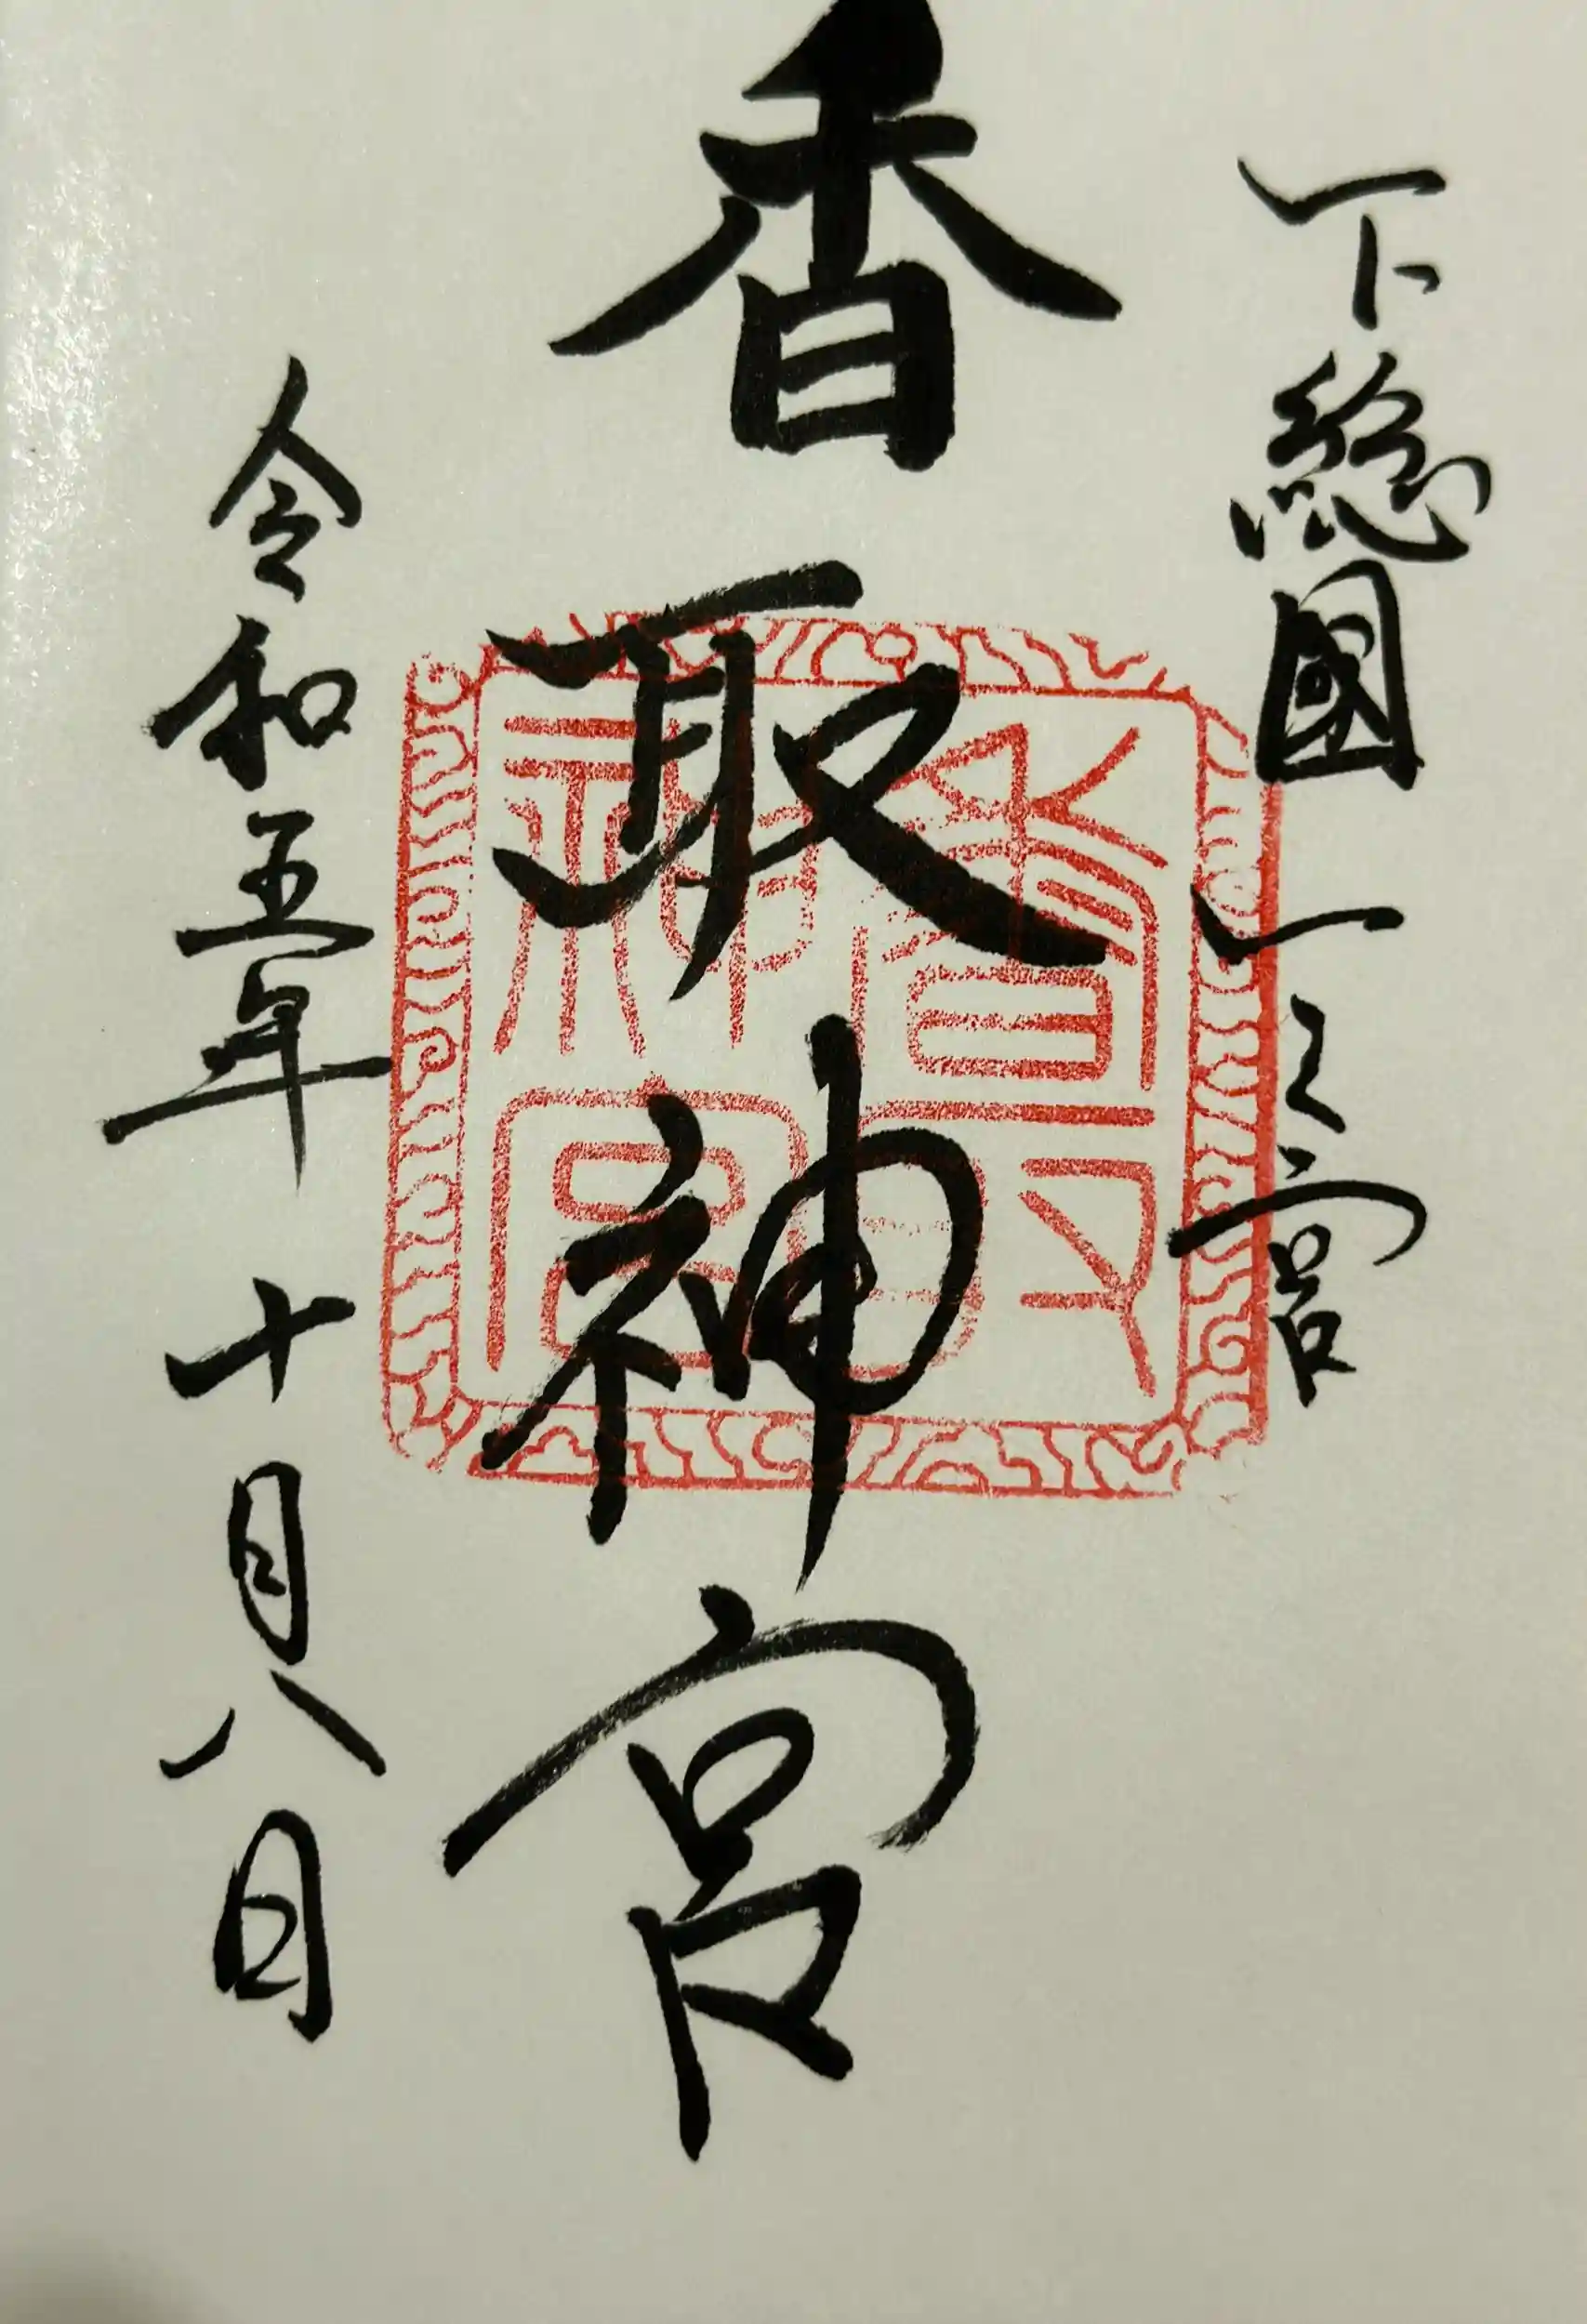 下総國一之宮
香取神宮
令和五年十月八日
香取神宮